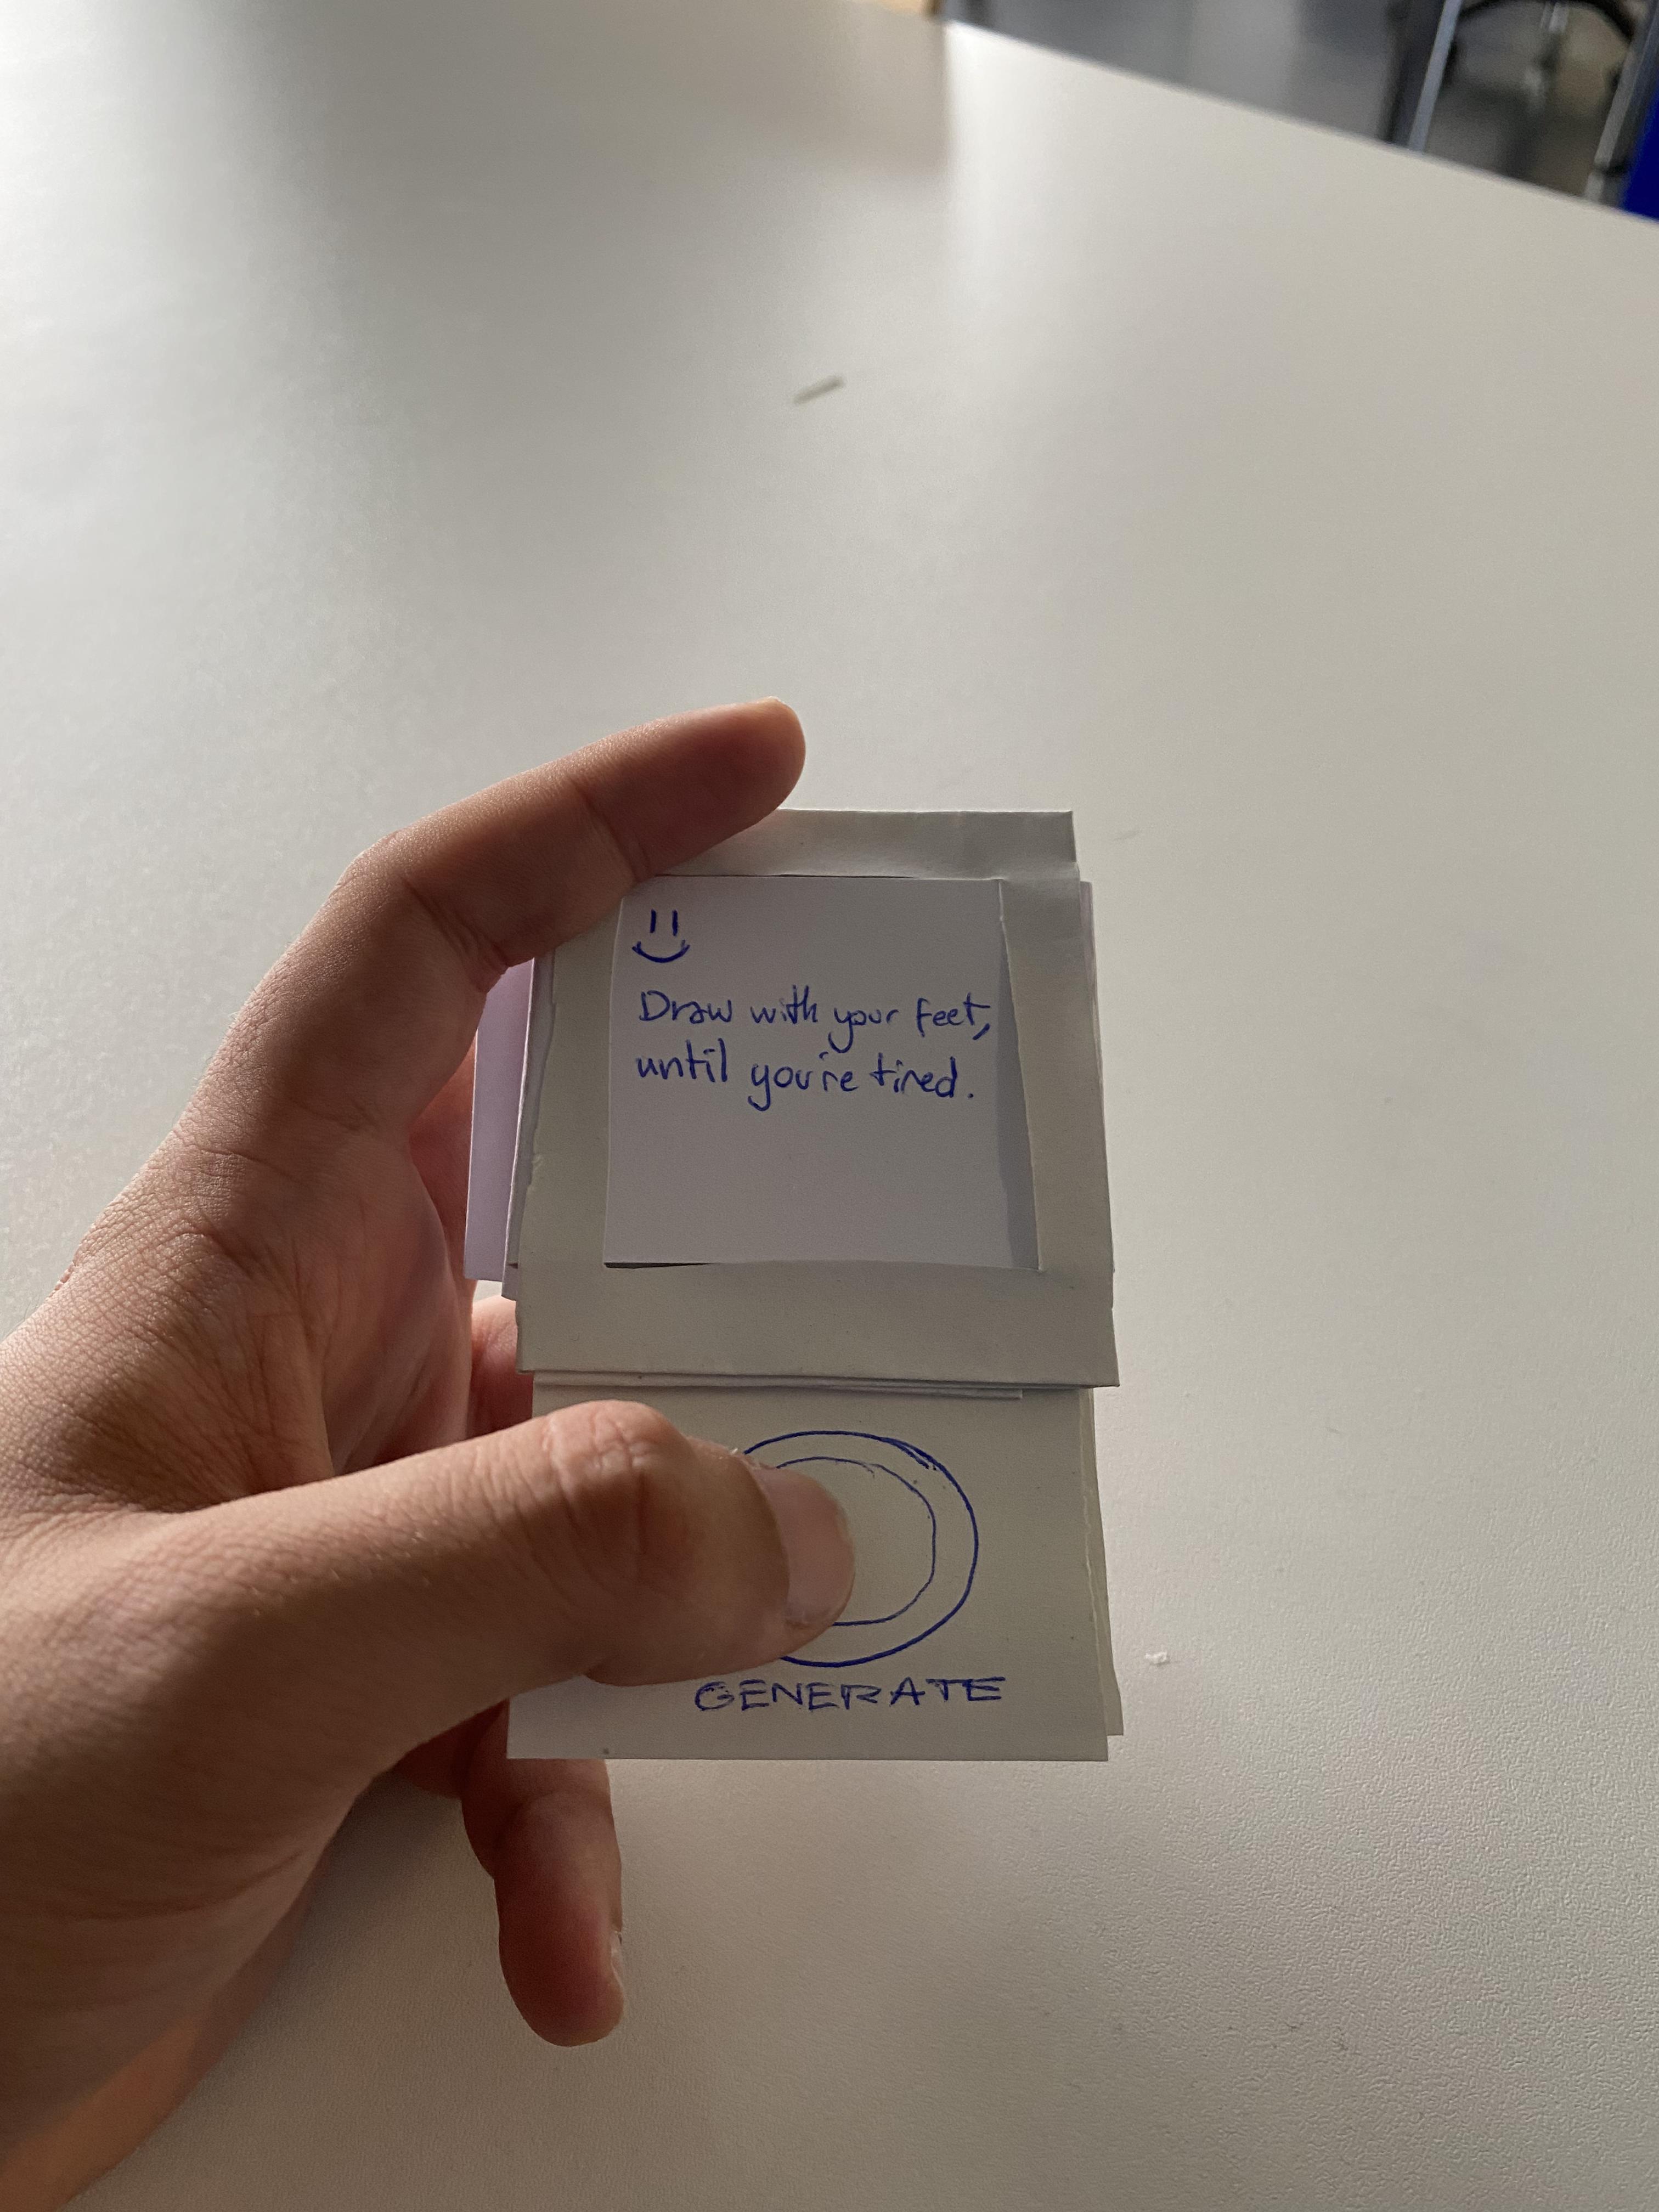 Draw with your feet,
until you're tired.
GENERATE